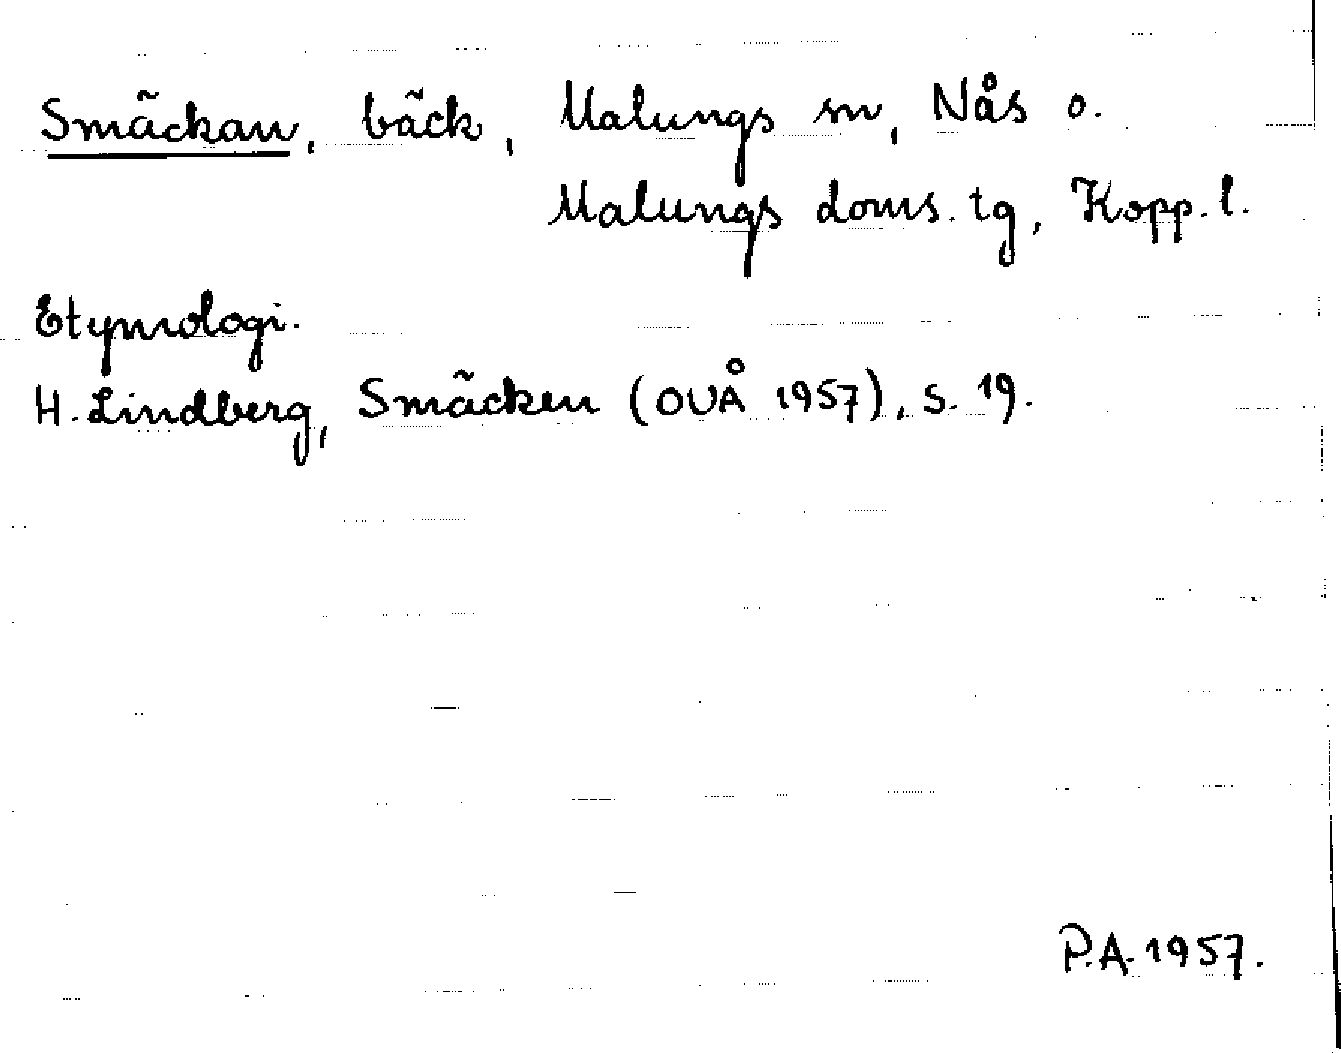 Smäckan, bäck, Malungs sn, Nås o.
Malungs doms. tg, Kopp. l.
Etymologi.
H. Lindberg, Smäcken (OUÅ 1957), s. 19.
P.A. 1957.